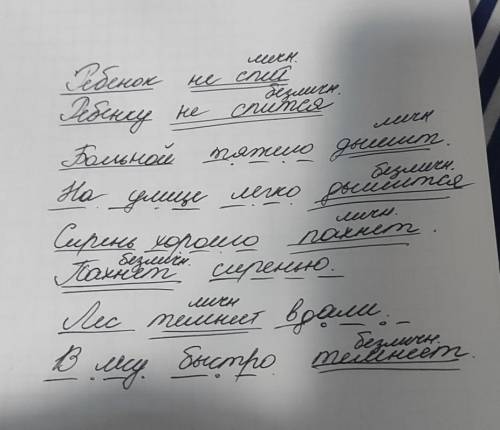 личн.
Ребенок не спит
безличн.
Ребенку не спится
личн
Больной тяжело дышит.
безличн.
На улице легко дышится
личн.
Сирень хорошо пахнет.
безличн.
Пахнет сиренью.
личн
Лес темнеет вдали.
безличн.
В лесу быстро темнеет.